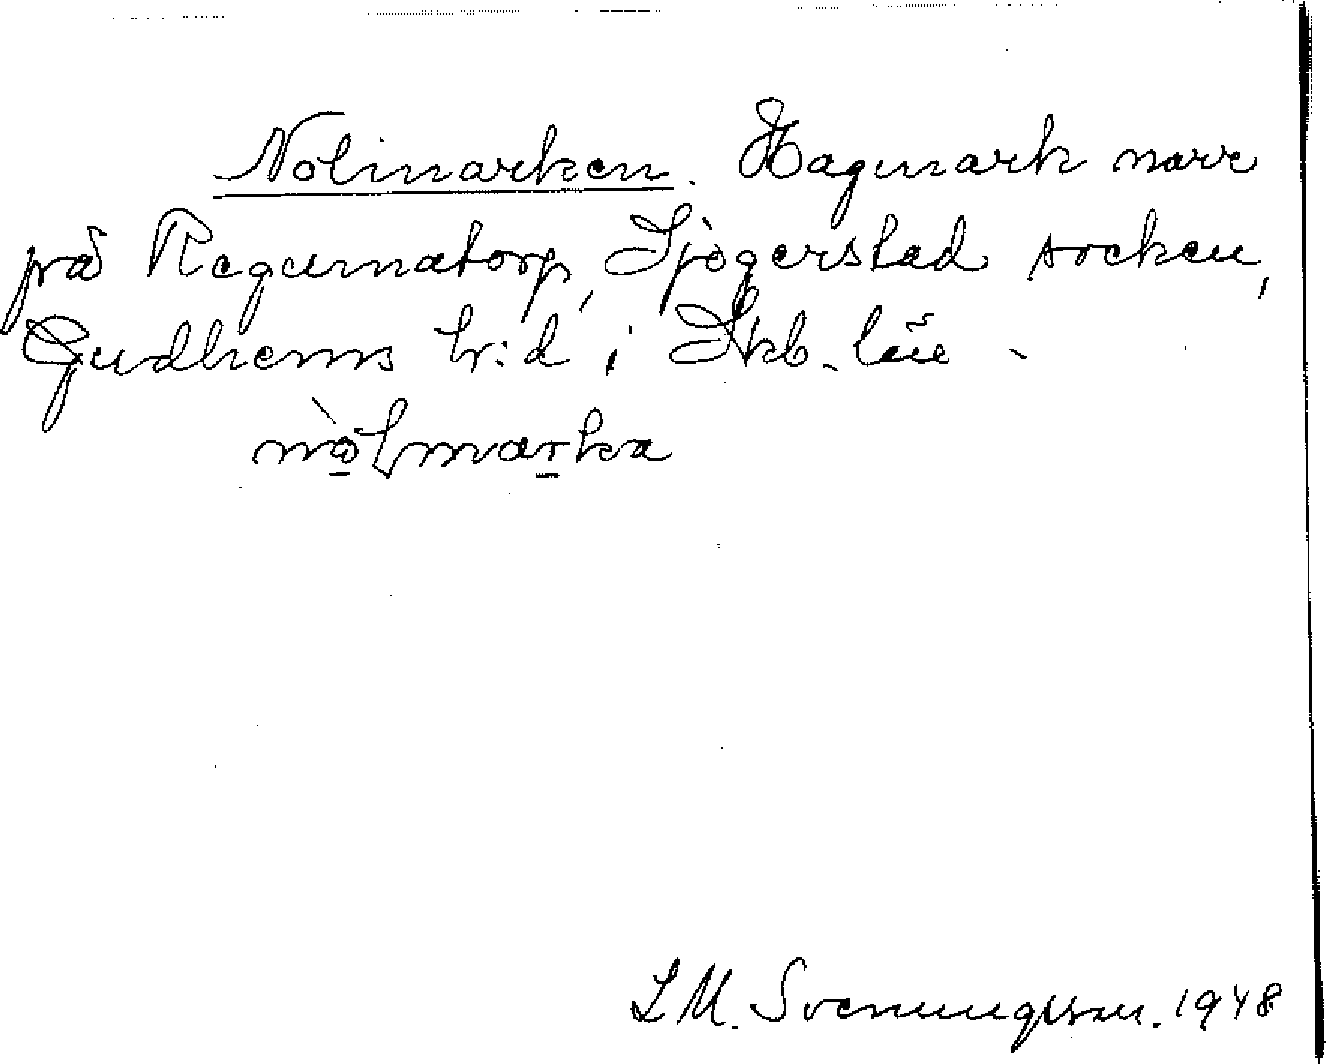 Nolmarken. Hagmark norr
på Regumatorp, Sjogerstad socken,
Gudhems h:d i Skb. län.
nòlmarka
L M. Svenungsson. 1948